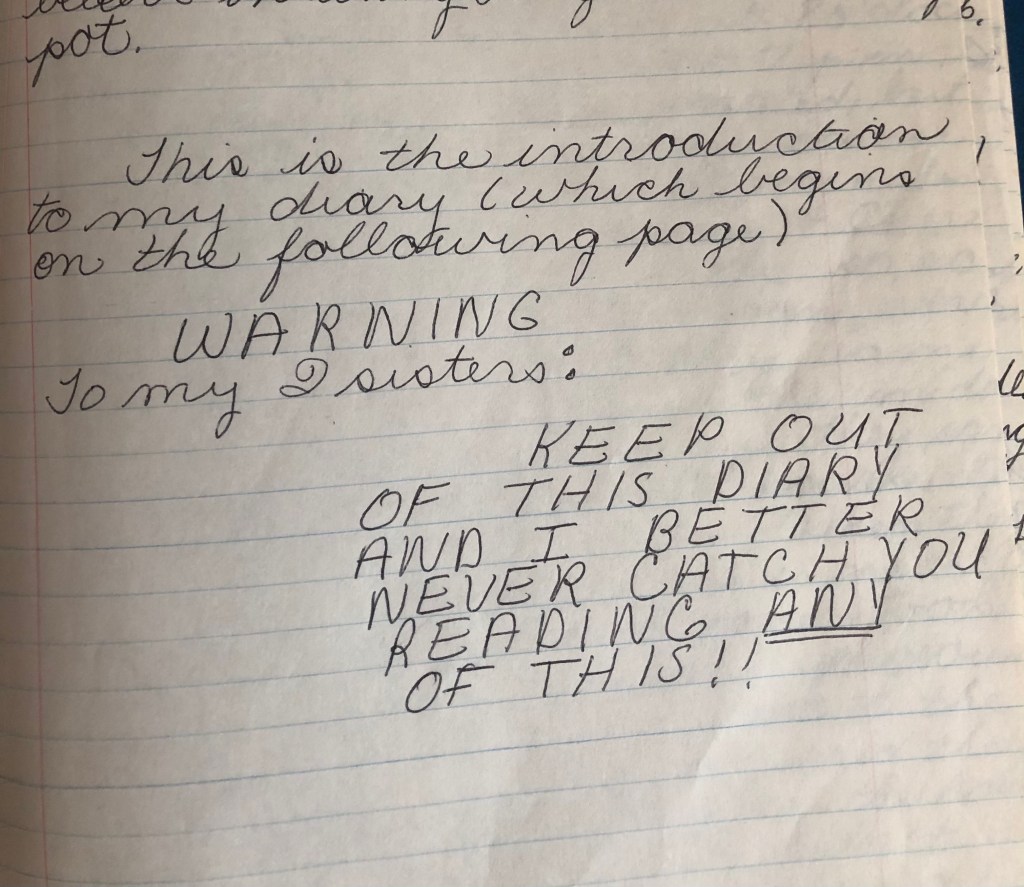 pot.
This is the introduction
to my diary (which begins
on the following page)
WARNING
To my 2 sisters:
KEEP OUT
OF THIS DIARY
AND I BETTER
NEVER CATCH YOU
READING ANY
OF THIS!!